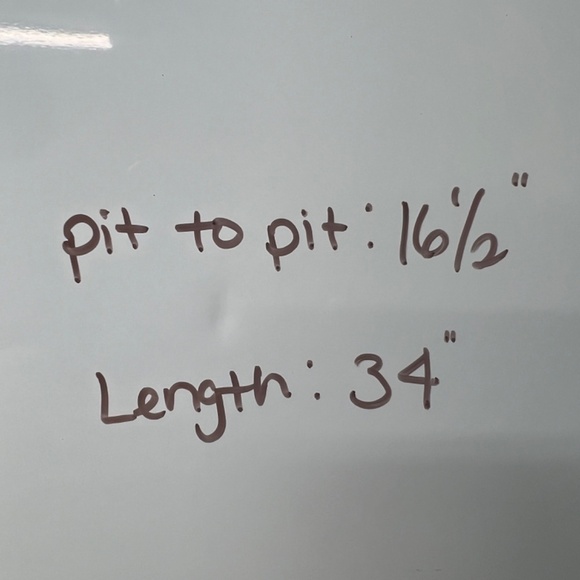 pit to pit: 16 1/2"
Length: 34"